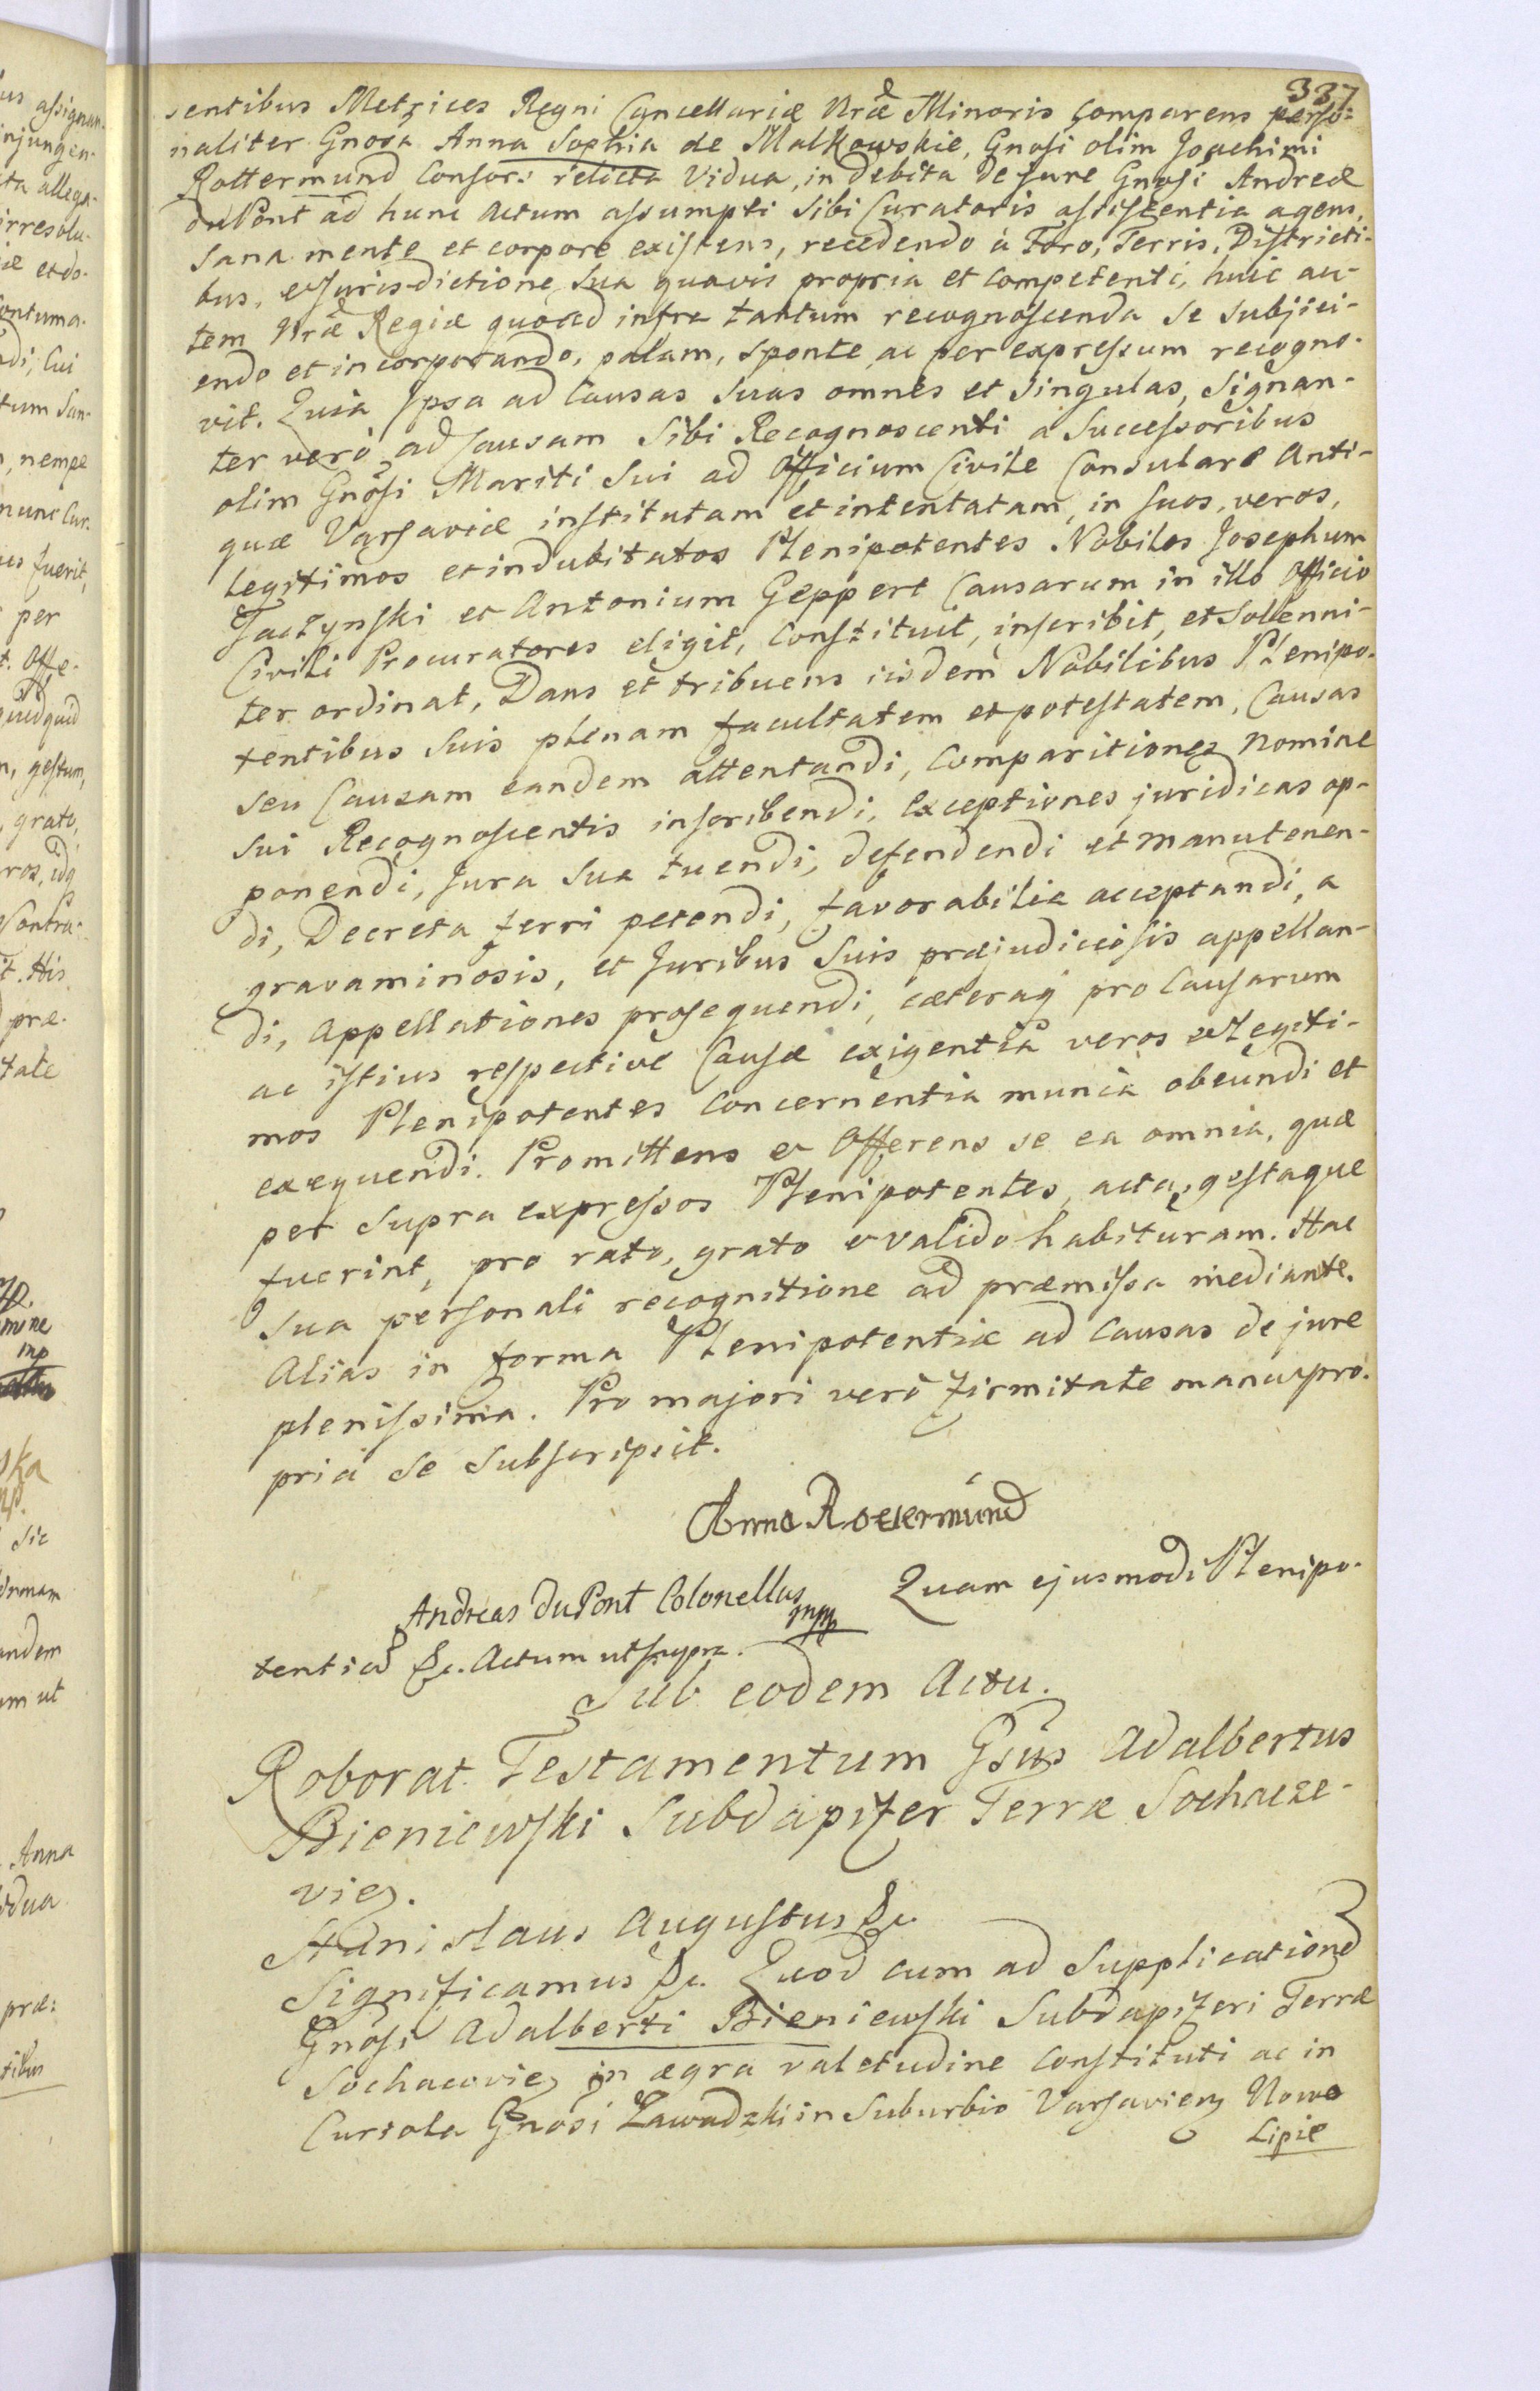 337
sentibus Metrices Regni Cancellariæ Nræ Minoris comparens perso-
naliter Gnosa Anna Sophia de Malkowskie, Gnosi olim Joachimi
Rottermund Consors relicta Vidua, in debita de jure Gnosi Andreæ
duPont ad hunc actum assumpti sibi Curatoris assistentia agens,
sana mente et corpore existens, recedendo à Foro, Terris, Districti-
bus, et Jurisdictione sua quavis propria et competenti, huic au-
tem Nræ Regiæ quoad infra tantum recognoscenda se subjici-
endo et incorporando, palam, sponte ac per expressum recogno-
vit. Quia Ipsa ad Causas suas omnes et singulas, signan-
ter verò ad Causam sibi Recognoscenti a Successoribus
olim Gnosi Mariti sui ad Officium Civile Consulare Anti-
quæ Varsaviæ institutam et intentatam, in suos, veros,
legitimos et indubitatos Plenipotentes Nobiles Josephum
Jaczynski et Antonium Geppert Causarum in illo Officio
Civili Procuratores eligit, constituit, inscribit, et solenni-
ter ordinat, Dans et tribuens iisdem Nobilibus Plenipo-
tentibus suis plenam facultatem et potestatem, Causas
seu Causam eandem attentandi, Comparitiones nomine
sui Recognoscentis inscribendi, exceptiones juridicas op-
ponendi, Jura sua tuendi, defendendi et manutenen-
di, Decreta ferri petendi, favorabilia acceptandi, a
gravaminosis, et Juribus suis præjudiciosis appellan-
di, appellationes prosequendi, cæteraq pro Causarum
ac istius respective Causæ exigentia veros et legiti-
mos Plenipotentes concernentia munia obeundi et
exequendi. Promittens et Offerens se ea omnia, quæ
per supra expressos Plenipotentes, acta, gestaque
fuerint, pro rato, grato et valido habituram. Hac
sua personali recognitione ad præmissa mediante.
Alias in forma Plenipotentiæ ad Causas de jure
plenissima. Pro majori verò firmitate manu pro-
pria se subscripsit.
Anna Rotermund
Andreas duPont Colonellus mp Quam ejusmodi Plenipo-
tentia &c. Actum ut supra.
Sub eodem Actu.
Roborat. Testamentum Gsus Adalbertus
Bieniewski Subdapifer Terræ Sochacze-
vien.
Stanislaus Augustus &c.
Significamus &c. Quod cum ad Supplicationē
Gnosi Adalberti Bieniewski Subdapiferi Terræ
Sochacovien in ægra valetudine constituti ac in
Curiola Gnosi Zawadzki in Suburbio Varsavien Nowo
Lipie